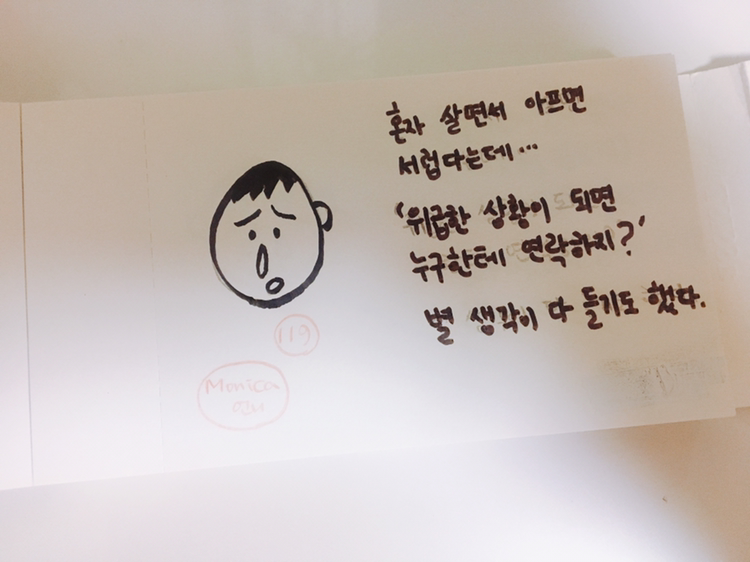 혼자 살면서 아프면
서럽다는데...
'위급한 상황이 되면
누구한테 연락하지?'
별 생각이 다 들기도 했다.
Monica
언니